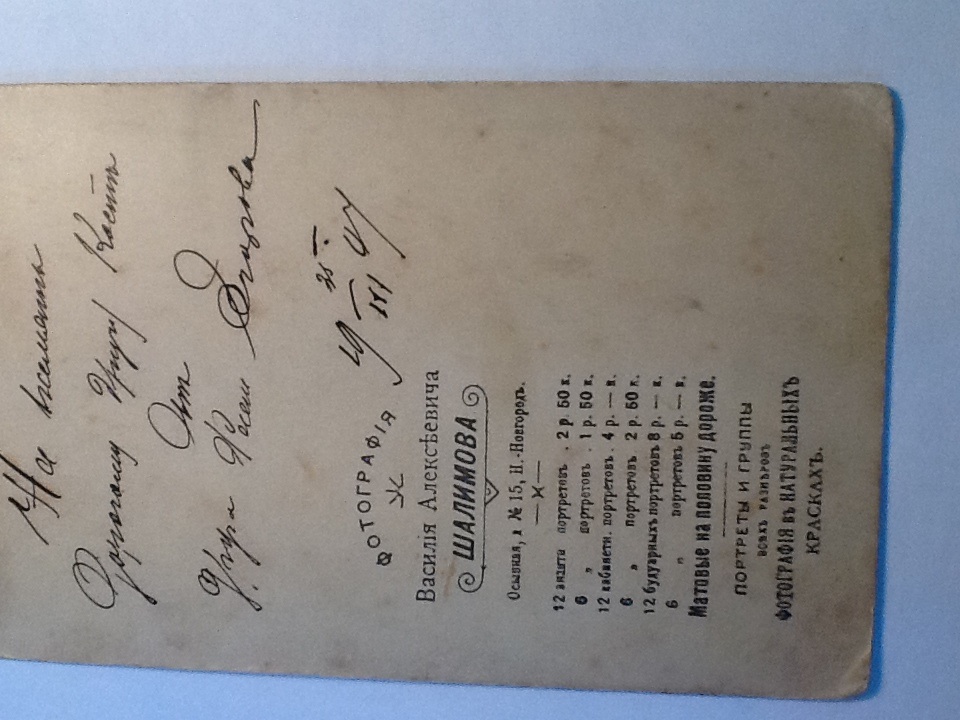 На
Дорогому другу Кости
Отъ
друга Васи
19 25/III 07
ФОТОГРАФІЯ
Василія Алексѣевича
ШАЛИМОВА
Осыпная, д № 15, Н.-Новгородъ.
12 визита портретовъ . 2 р. 50 к.
6 „ портретовъ . 1 р. 50 к.
12 кабинетн. портретовъ . 4 р. — к.
6 „ портретовъ 2 р. 50 к.
12 будуарныхъ портретовъ 8 р. — к.
6 „ портретовъ 5 р. — к.
Матовые на половину дороже.
ПОРТРЕТЫ И ГРУППЫ
ВСѢХЪ РАЗМѢРОВЪ
ФОТОГРАФІЯ ВЪ НАТУРАЛЬНЫХЪ
КРАСКАХЪ.